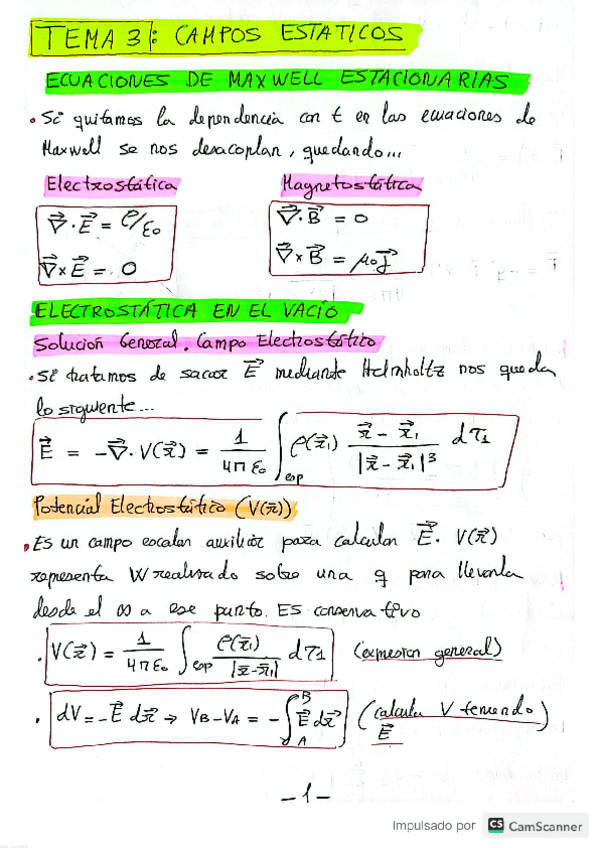 TEMA 3: CAMPOS ESTATICOS
ECUACIONES DE MAXWELL ESTACIONARIAS
• Si quitamos la dependencia con t en las ecuaciones de
Maxwell se nos desacoplan, quedando...
Electrostática Magnetostática
∇⃗·E⃗ = ρ/ε₀ ∇⃗·B⃗ = 0
∇⃗×E⃗ = 0 ∇⃗×B⃗ = μ₀J⃗
ELECTROSTÁTICA EN EL VACIO
Solución General. Campo Electrostático
• Si tratamos de sacar E⃗ mediante Helmholtz nos queda
lo siguiente...
E⃗ = -∇⃗·V(r⃗) = 1/4πε₀ ∫esp ρ(r⃗₁) r⃗ - r⃗₁/|r⃗ - r⃗₁|³ dτ₁
Potencial Electrostático (V(r⃗))
• Es un campo escalar auxiliar para calcular E⃗. V(r⃗)
representa W realizado sobre una q para llevarla
desde el ∞ a ese punto. ES conservativo
• V(r⃗) = 1/4πε₀ ∫esp ρ(r⃗₁)/|r⃗-r⃗₁| dτ₁ (expresion general)
• dV = -E⃗ dr⃗ → VB - VA = -∫AB E⃗ dr⃗ (calcular V teniendo)
E⃗
-1-
Impulsado por CS CamScanner